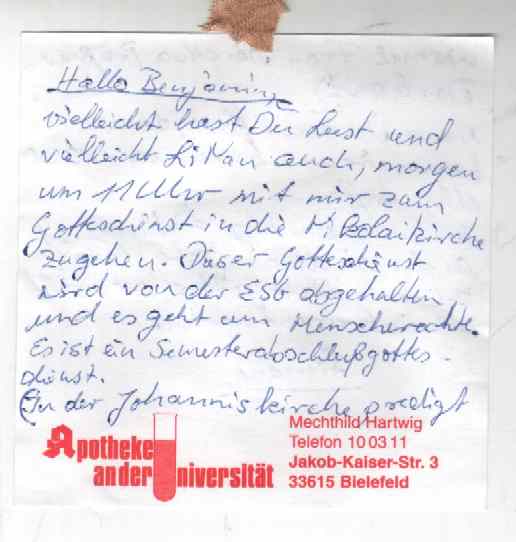 Hallo Benjamin,
vielleicht hast Du Lust und
vielleicht LiNan auch, morgen
um 11 Uhr mit mir zum
Gottesdienst in die Nikolaikirche
zugehen. Dieser Gottesdienst
wird von der ESG abgehalten
und es geht um Menschenrechte.
Es ist ein Semesterabschlußgottes-
dienst.
(In der Johanniskirche predigt
Apotheke
an der Universität
Mechthild Hartwig
Telefon 10 03 11
Jakob-Kaiser-Str. 3
33615 Bielefeld